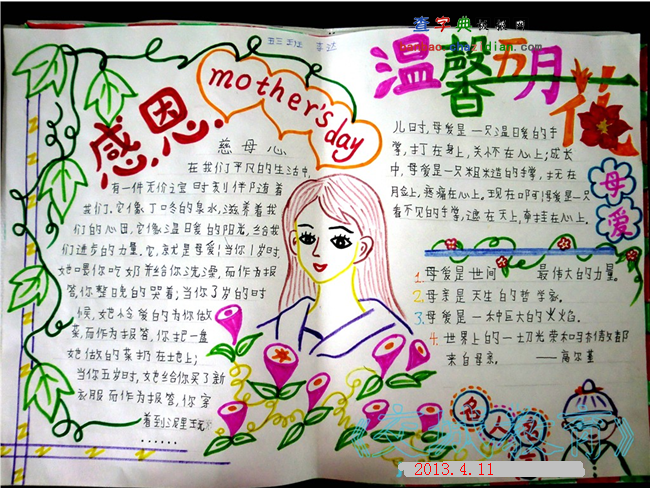 查字典
chazidian.com
感恩
mother's
day
慈母心
在我们平凡的生活中,
有一件无价宝时刻伴随着
我们.它像丁咚的泉水,滋养着我
们的心田,它像温暖的阳光,给我
们进步的力量,它就是母爱!当你1岁时
她喂你吃奶并给你洗澡,而作为报
答,你整晚的哭着;当你3岁的时
候,她怜爱的为你做
菜,而作为报答,你把一盘
她做的菜扔在地上;
当你五岁时,她给你买了新
衣服而作为报答,你穿
着到泥里玩
......
温馨五月花
儿时,母爱是一只温暖的手
掌,打在身上,关怀在心上;成长
中,母爱是一只粗糙的手掌,
脸上,疼痛在心上。现在母爱是一只
看不见的手掌,遮在天上,牵挂在心上。
母爱
1.母爱是世间 最伟大的力量。
2.母亲是天生的哲学家。
3.母爱是一种巨大的火焰。
4.世界上的一切光荣和骄傲都
来自母亲。 ——高尔基
名人名言
2013.4.11